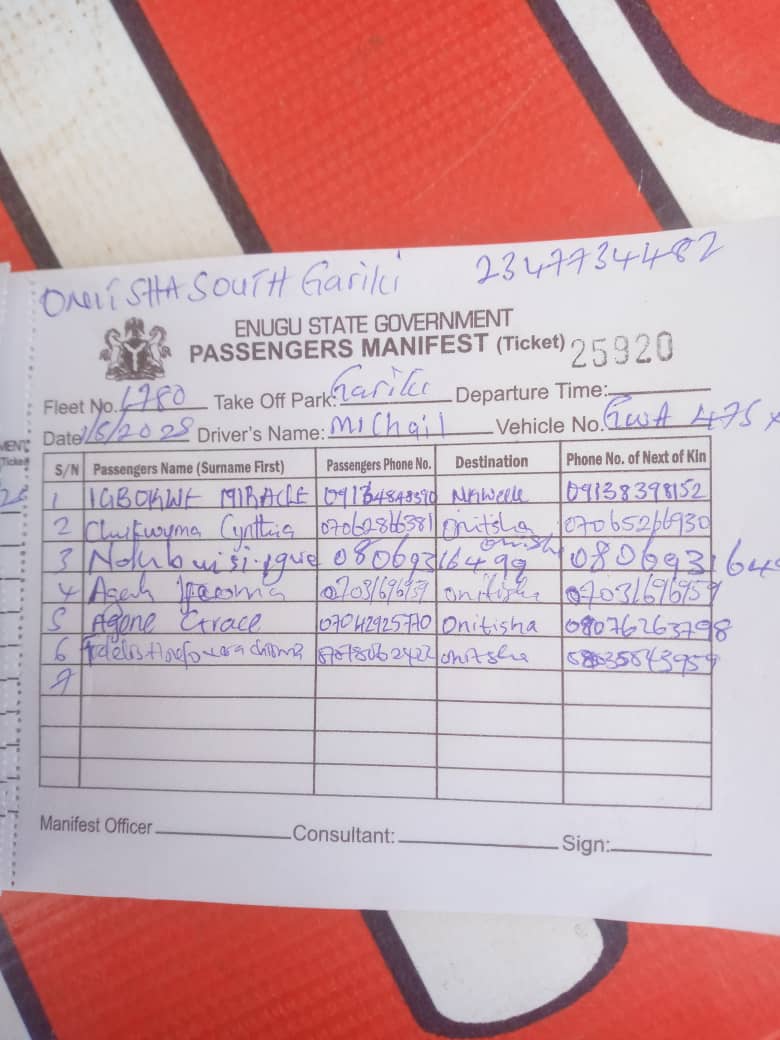 ONITSHA SOUTH Gariki 2347734482
ENUGU STATE GOVERNMENT
PASSENGERS MANIFEST (Ticket) 25920
Fleet No. 1780 Take Off Park: Gariki Departure Time:
Date 1/5/2028 Driver's Name: MIChail Vehicle No. GWA 475 X
S/N Passengers Name (Surname First) Passengers Phone No. Destination Phone No. of Next of Kin
1 IGBOKWE MIRACLE Nkwelle 09138398152
2 Cynthia 07062866381 Onitsha 07065266930
3 08069316499 Onitsha
4 Ifeoma 07031696959 Onitisha 07031696959
5 Agene Grace 07042925770 Onitisha 08076263798
6 Onitsha
7
Manifest Officer Consultant: Sign: